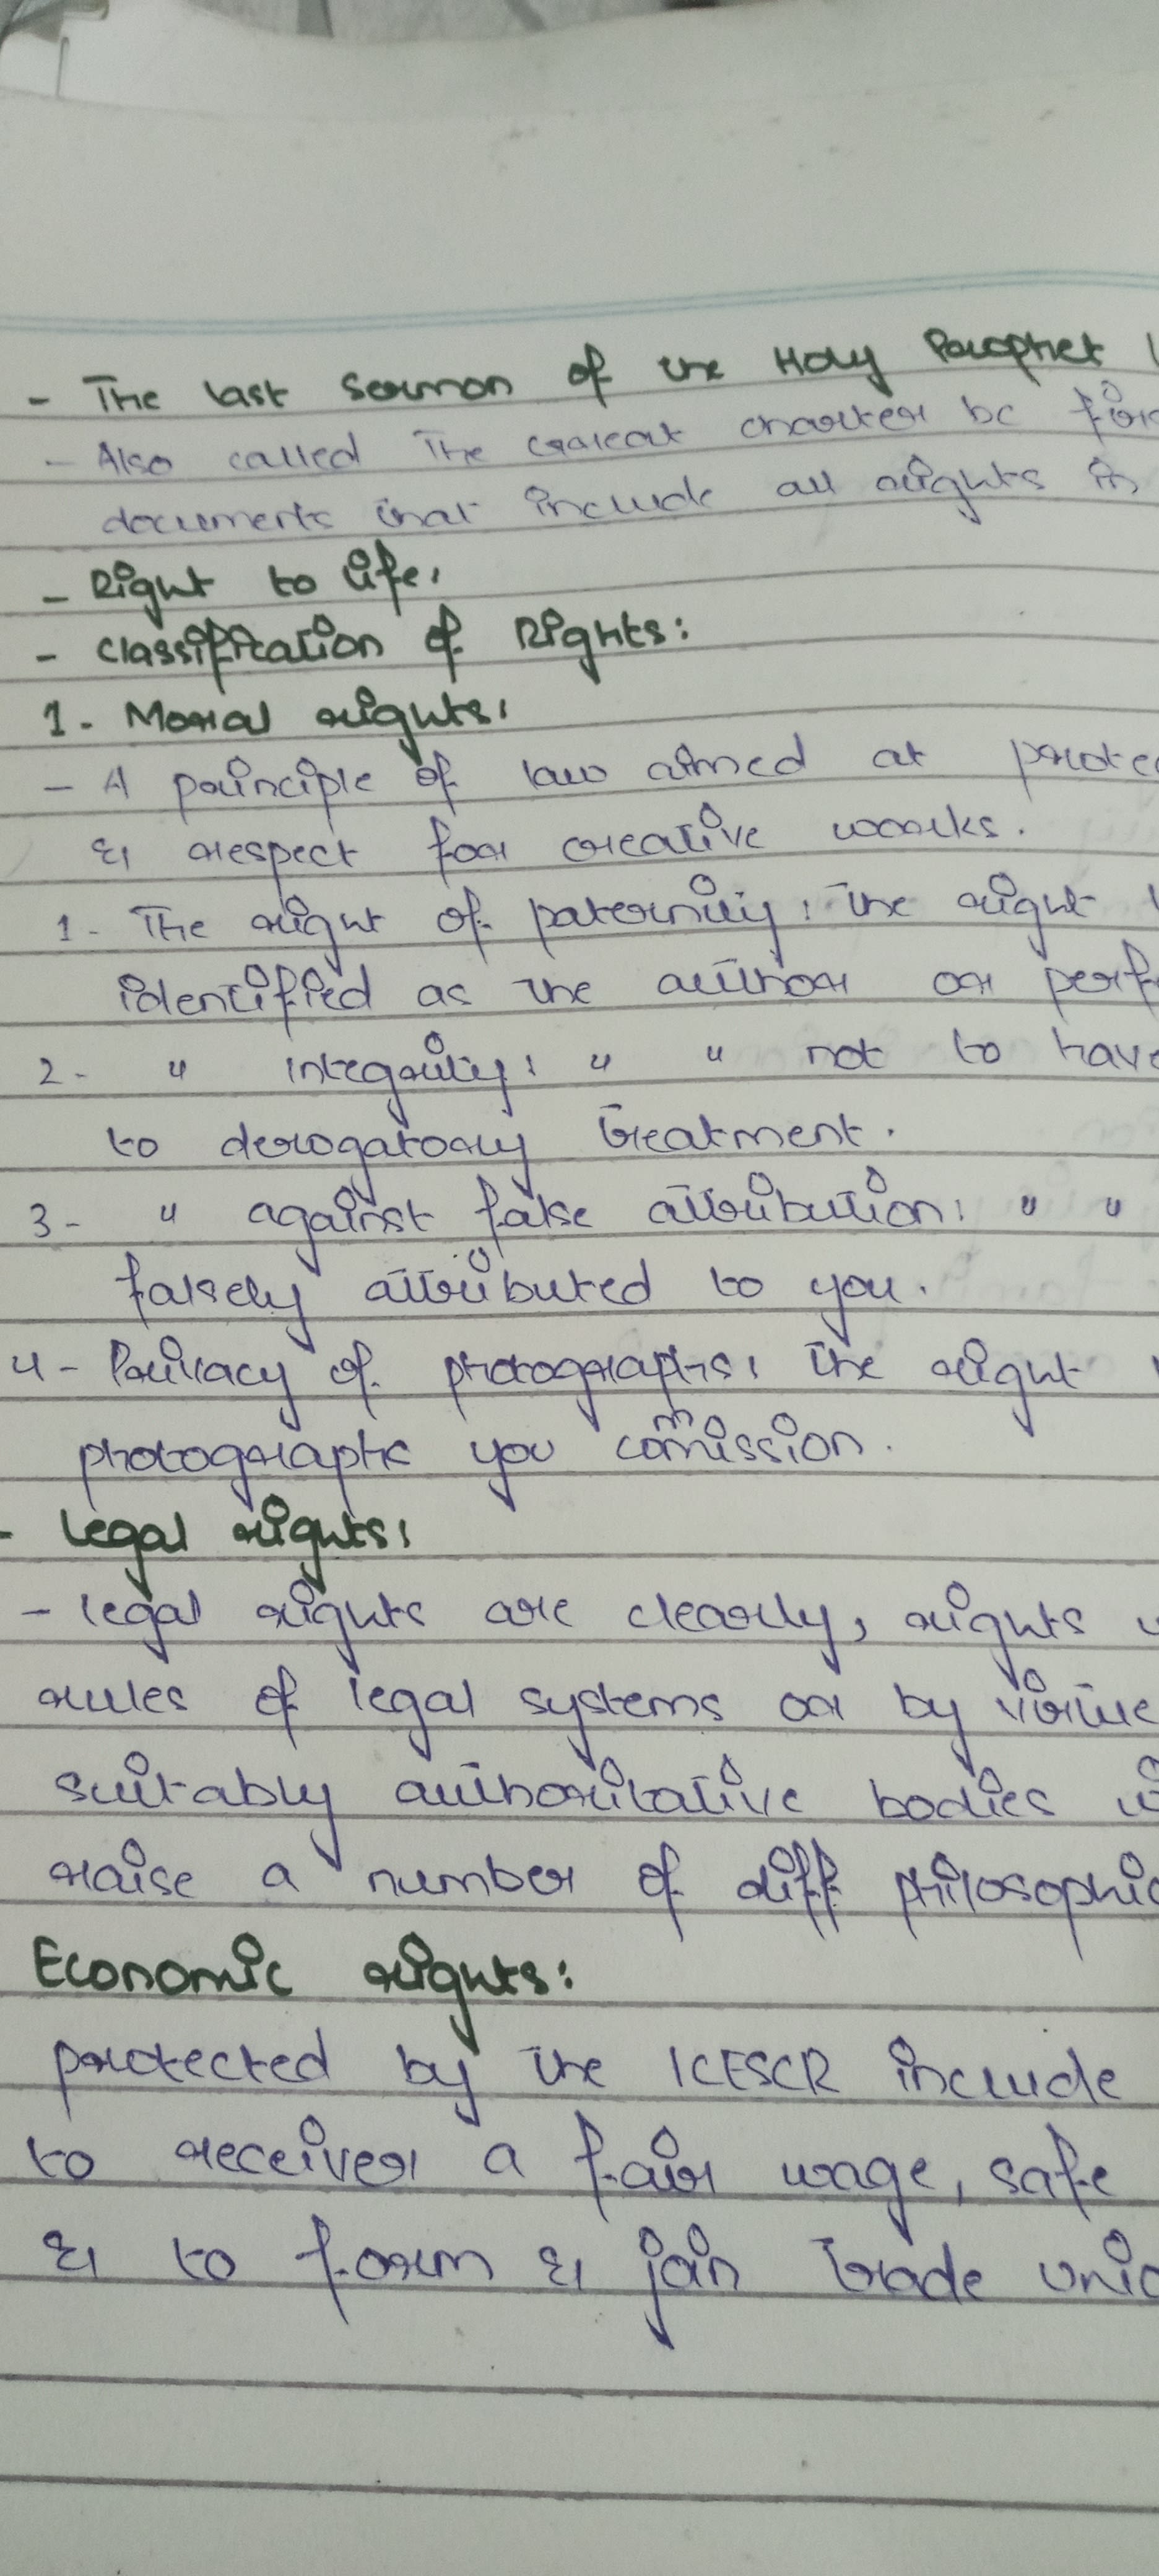 - The last Sermon of the Holy Prophet
- Also called The Great charter bc
documents that include all rights in
- Right to life:
- Classification of Rights:
1- Moral rights:
- A principle of law aimed at
& respect for creative works.
1- The right of paternity: the right
identified as the author or
2- " integrity: " " not to have
to derogatory treatment.
3- " against false attribution: " "
falsely attributed to you.
4- Privacy of photographs: The right
photographs you commission.
- Legal rights:
- legal rights are clearly, rights
rules of legal systems or by virtue
suitably authoritative bodies
raise a number of diff
Economic rights:
protected by the ICESCR include
to receiver a fair wage, safe
& to form & join trade